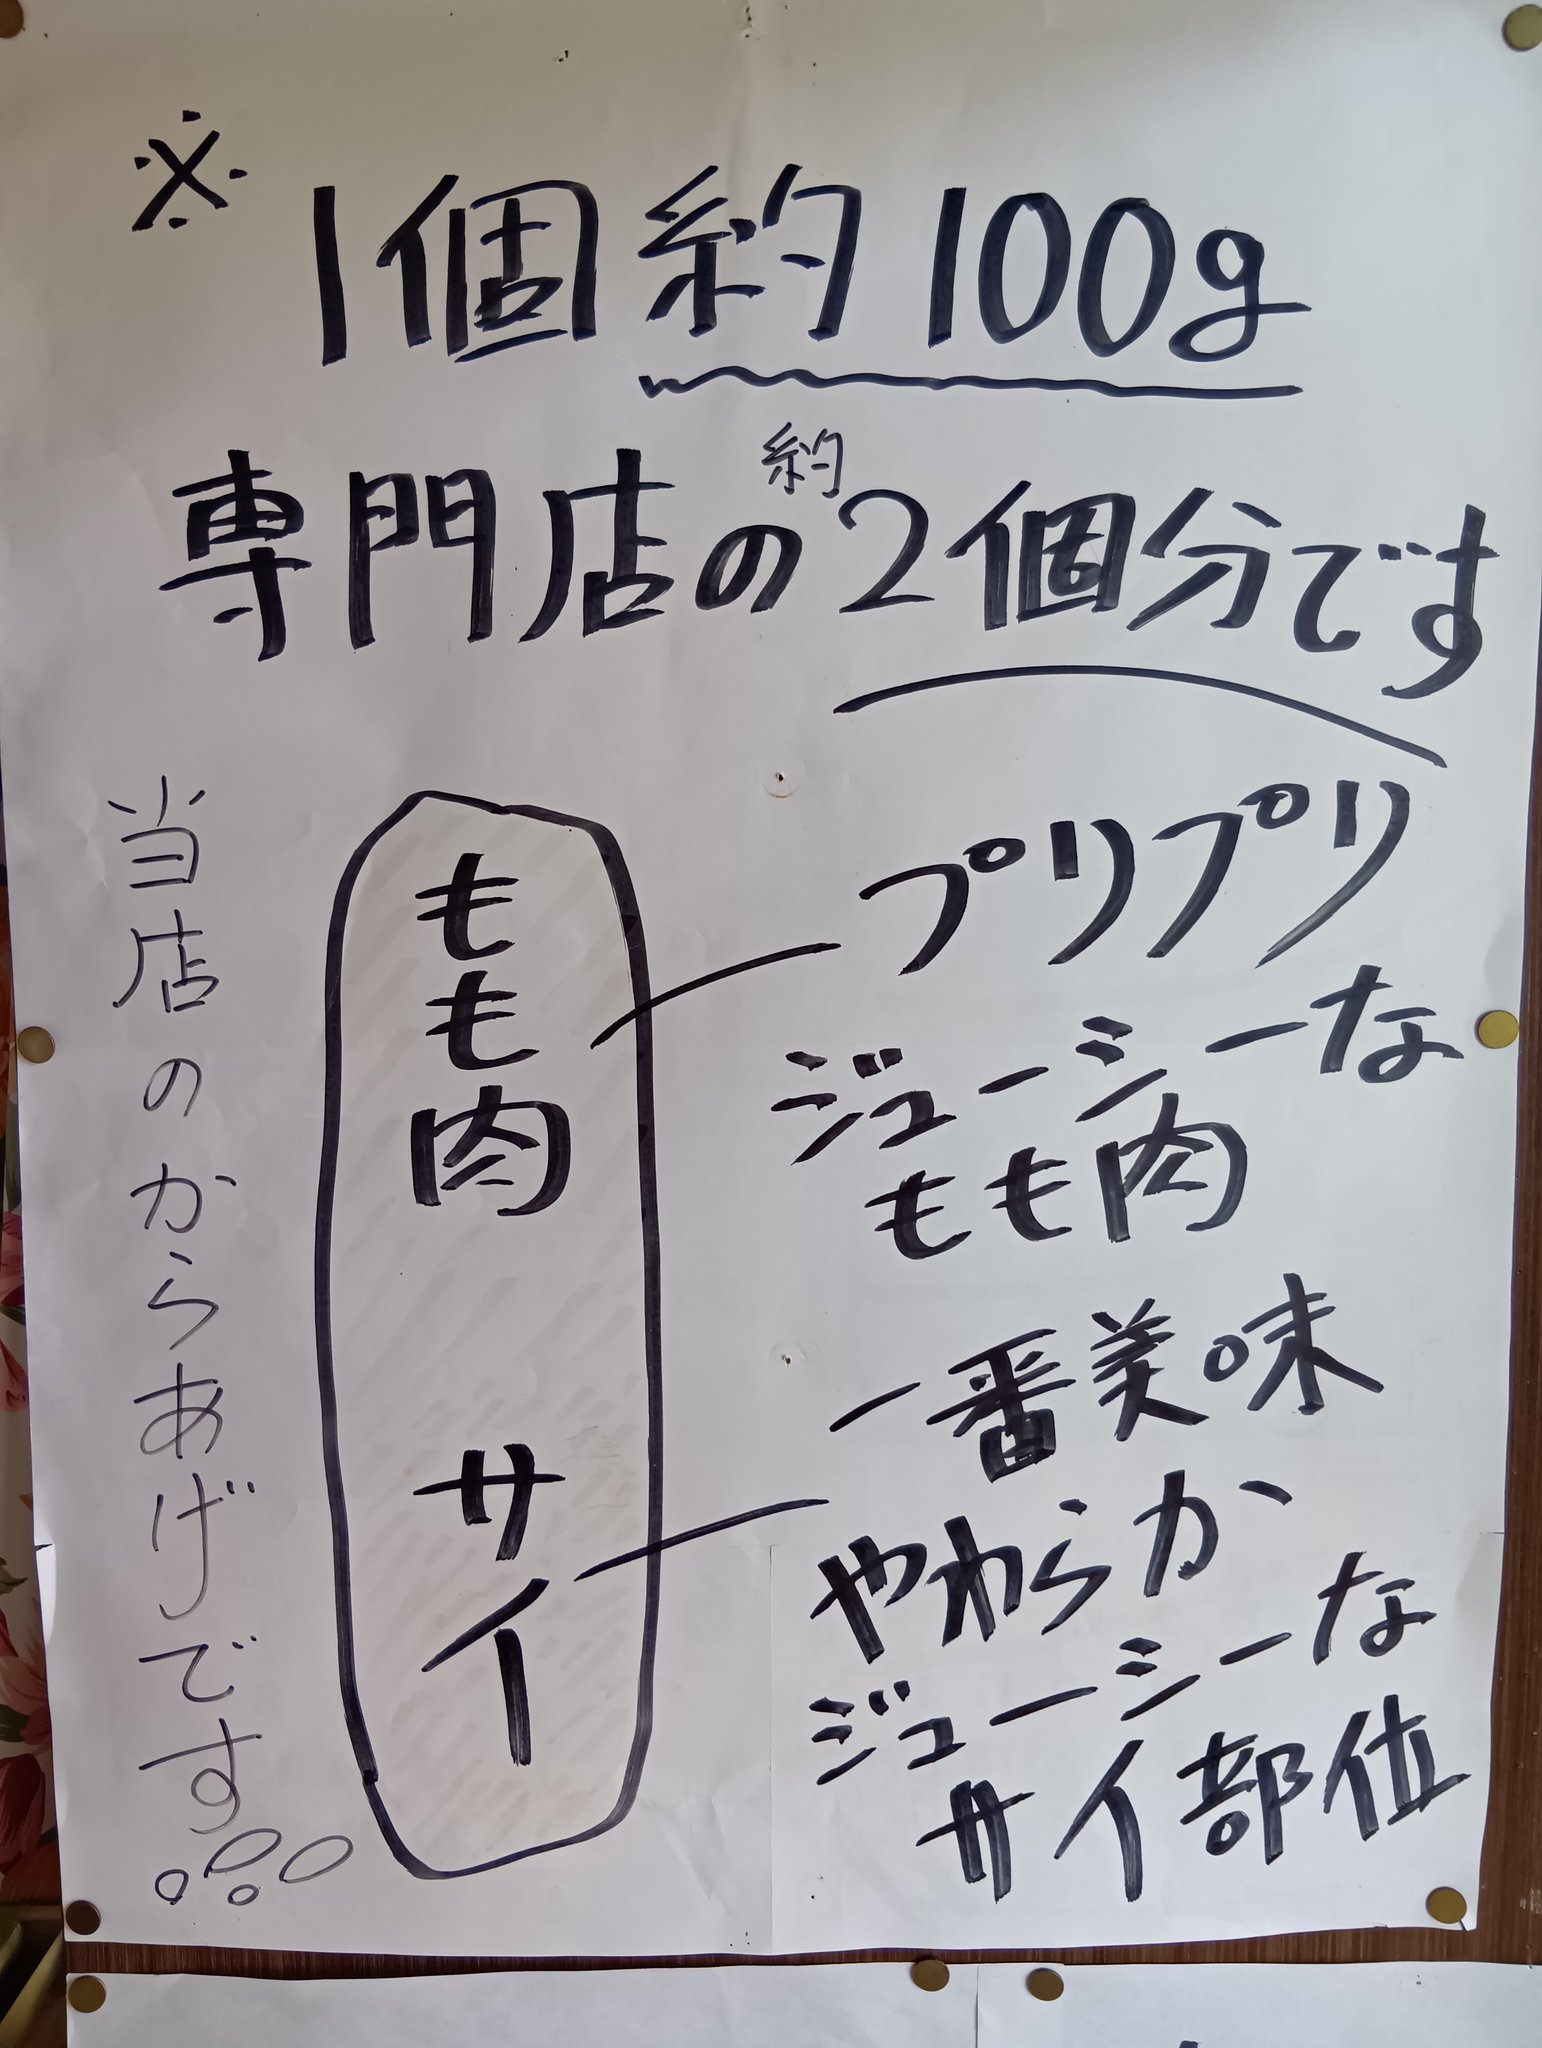 ※
1個約100g
専門店の約2個分です
プリプリ
ジューシーな
もも肉
一番美味
やわらか
ジューシーな
サイ部位
もも肉 サイ
当店のからあげです